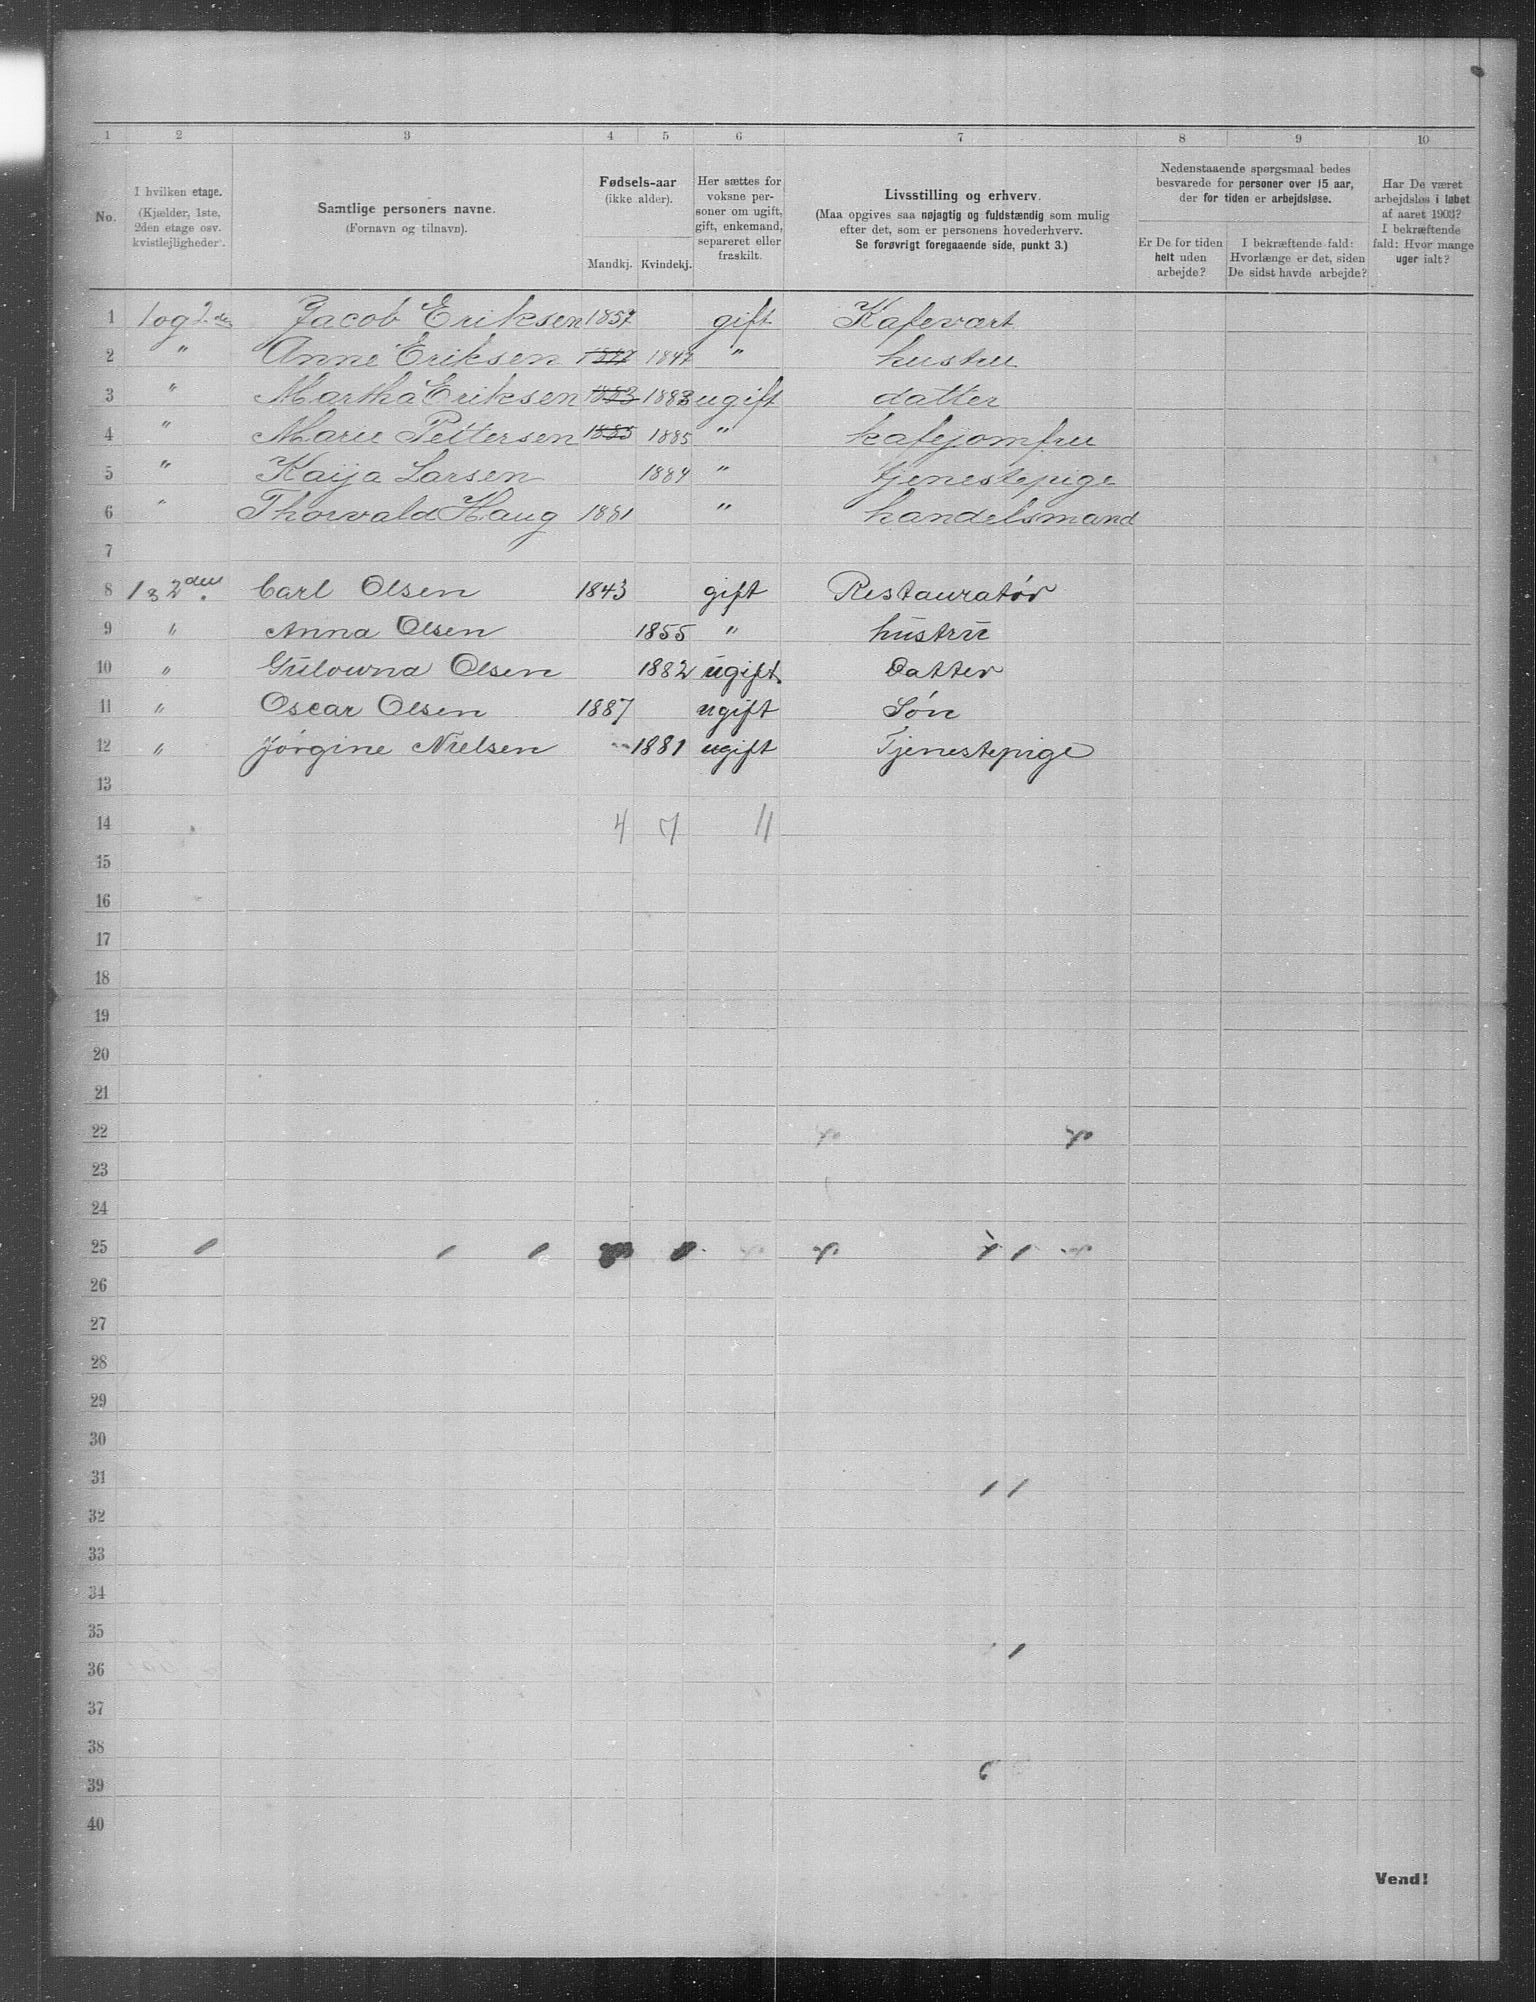 1 2 3 4 5 6 7 8 9 10
No.
I hvilken etage.
(Kjælder, 1ste,
2den etage osv.
kvistlejligheder).
Samtlige personers navne.
(Fornavn og tilnavn).
Fødsels-aar
(ikke alder).
Mandkj. Kvindekj.
Her sættes for
voksne per-
soner om ugift,
gift, enkemand,
separeret eller
fraskilt.
Livsstilling og erhverv.
(Maa opgives saa nøjagtig og fuldstændig som mulig
efter det, som er personens hovederhverv.
Se forøvrigt foregaaende side, punkt 3.)
Nedenstaaende spørgsmaal bedes
besvarede for personer over 15 aar,
der for tiden er arbejdsløse.
Er De for tiden
helt uden
arbejde?
I bekræftende fald:
Hvorlænge er det, siden
De sidst havde arbejde?
Har De været
arbejdsløs i løbet
af aaret 1903?
I bekræftende
fald: Hvor mange
uger ialt?
1 1 og 2den Jacob Eriksen 1857 gift Kafevært
2 " Anne Eriksen 1847 " hustru
3 " Martha Eriksen 1883 1883 ugift datter
4 " Marie Pettersen 1885 1885 " kafejomfru
5 " Kaija Larsen 1884 " tjenestepige
6 " Thorvald Haug 1881 " handelsmand
7
8 1 & 2den. Carl Olsen 1843 gift Restauratør
9 " Anna Olsen 1855 " hustru
10 " Olsen 1882 ugift. Datter
11 " Oscar Olsen 1887 ugift Søn
12 " Jørgine Nielsen 1881 ugift Tjenestepige
13
14 4 7 11
15
16
17
18
19
20
21
22
23
24
25
26
27
28
29
30
31
32
33
34
35
36
37
38
39
40
Vend!